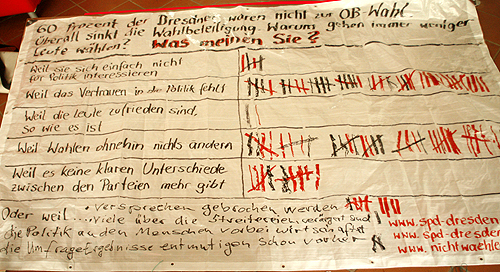 60 Prozent der Dresdner waren nicht zur OB-Wahl.
Überall sinkt die Wahlbeteiligung. Warum gehen immer weniger
Leute wählen? Was meinen Sie?
Weil sie sich einfach nicht
für Politik interessieren
Weil das Vertrauen in die Politik fehlt
Weil die Leute zufrieden sind,
so wie es ist
Weil Wahlen ohnehin nichts ändern
Weil es keine klaren Unterschiede
zwischen den Parteien mehr gibt
Oder weil... Versprechen gebrochen werden
...Viele über die verärgert sind
die Politik an den Menschen vorbei wirtschaftet
die Umfrageergebnisse entmutigen schon vorher
www.spd-dresden
www.spd-dresden
www.nichtwaehle